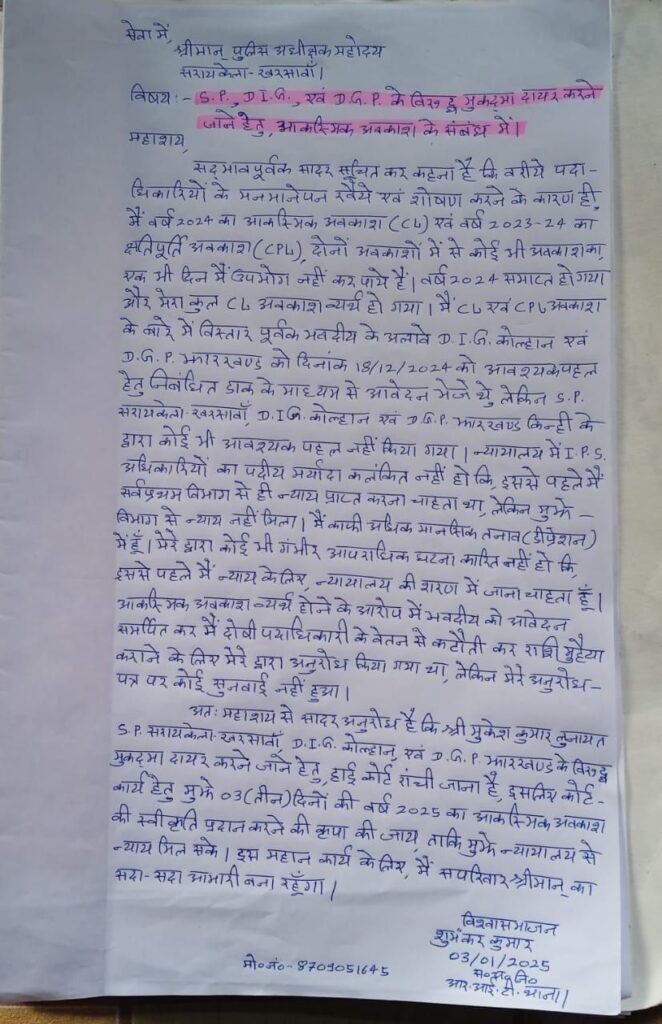 सेवा में,
श्रीमान् पुलिस अधीक्षक महोदय
सरायकेला-खरसावाँ।
विषय:- S.P., D.I.G., एवं D.G.P. के विरुद्ध मुकदमा दायर करने
जाने हेतु, आकस्मिक अवकाश के संबंध में।
महाशय,
सद्भावपूर्वक सादर सूचित कर कहना है कि वरीये पदा-
धिकारियों के मनमानेपन रवैये एवं शोषण करने के कारण ही,
मैं वर्ष 2024 का आकस्मिक अवकाश (CL) एवं वर्ष 2023-24 का
क्षतिपूर्ति अवकाश (CPL), दोनों अवकाशों में से कोई भी अवकाश का,
एक भी दिन मैं उपभोग नहीं कर पाये हैं। वर्ष 2024 समाप्त हो गया
और मेरा कुल CL अवकाश व्यर्थ हो गया। मैं CL एवं CPL अवकाश
के बारे में विस्तार पूर्वक भवदीय के अलावे D.I.G. कोल्हान एवं
D.G.P. झारखण्ड को दिनांक 18/12/2024 को आवश्यक पहल
हेतु निबंधित डाक के माध्यम से आवेदन भेजे थे, लेकिन S.P.
सरायकेला-खरसावाँ, D.I.G. कोल्हान एवं D.G.P. झारखण्ड किन्ही के
द्वारा कोई भी आवश्यक पहल नहीं किया गया। न्यायालय में I.P.S.
अधिकारियों का पदीय मर्यादा कलंकित नहीं हो कि, इससे पहले मैं
सर्वप्रथम विभाग से ही न्याय प्राप्त करना चाहता था, लेकिन मुझे-
विभाग से न्याय नहीं मिला। मैं काफी अधिक मानसिक तनाव (डीप्रेशन)
में हूँ। मेरे द्वारा कोई भी गंभीर आपराधिक घटना कारित नहीं हो कि,
इससे पहले मैं न्याय के लिए, न्यायालय की शरण में जाना चाहता हूँ।
आकस्मिक अवकाश व्यर्थ होने के आरोप में भवदीय को आवेदन
समर्पित कर मैं दोषी पदाधिकारी के वेतन से कटौती कर राशि मुहैया
कराने के लिए मेरे द्वारा अनुरोध किया गया था, लेकिन मेरे अनुरोध-
पत्र पर कोई सुनवाई नहीं हुआ।
अतः महाशय से सादर अनुरोध है कि श्री मुकेश कुमार लुनायत
S.P. सरायकेला-खरसावाँ, D.I.G. कोल्हान, एवं D.G.P. झारखण्ड के विरुद्ध
मुकदमा दायर करने जाने हेतु, हाई कोर्ट रांची जाना है, इसलिए कोर्ट-
कार्य हेतु मुझे 03 (तीन) दिनों की वर्ष 2025 का आकस्मिक अवकाश
की स्वीकृति प्रदान करने की कृपा की जाय, ताकि मुझे न्यायालय से
न्याय मिल सके। इस महान कार्य के लिए, मैं सपरिवार श्रीमान् का
सदा-सदा आभारी बना रहूँगा।
विश्वासभाजन
शुभंकर कुमार
03/01/2025
स०अ०नि०
आर.आई.टी. थाना।
मो०नं०-8709051645